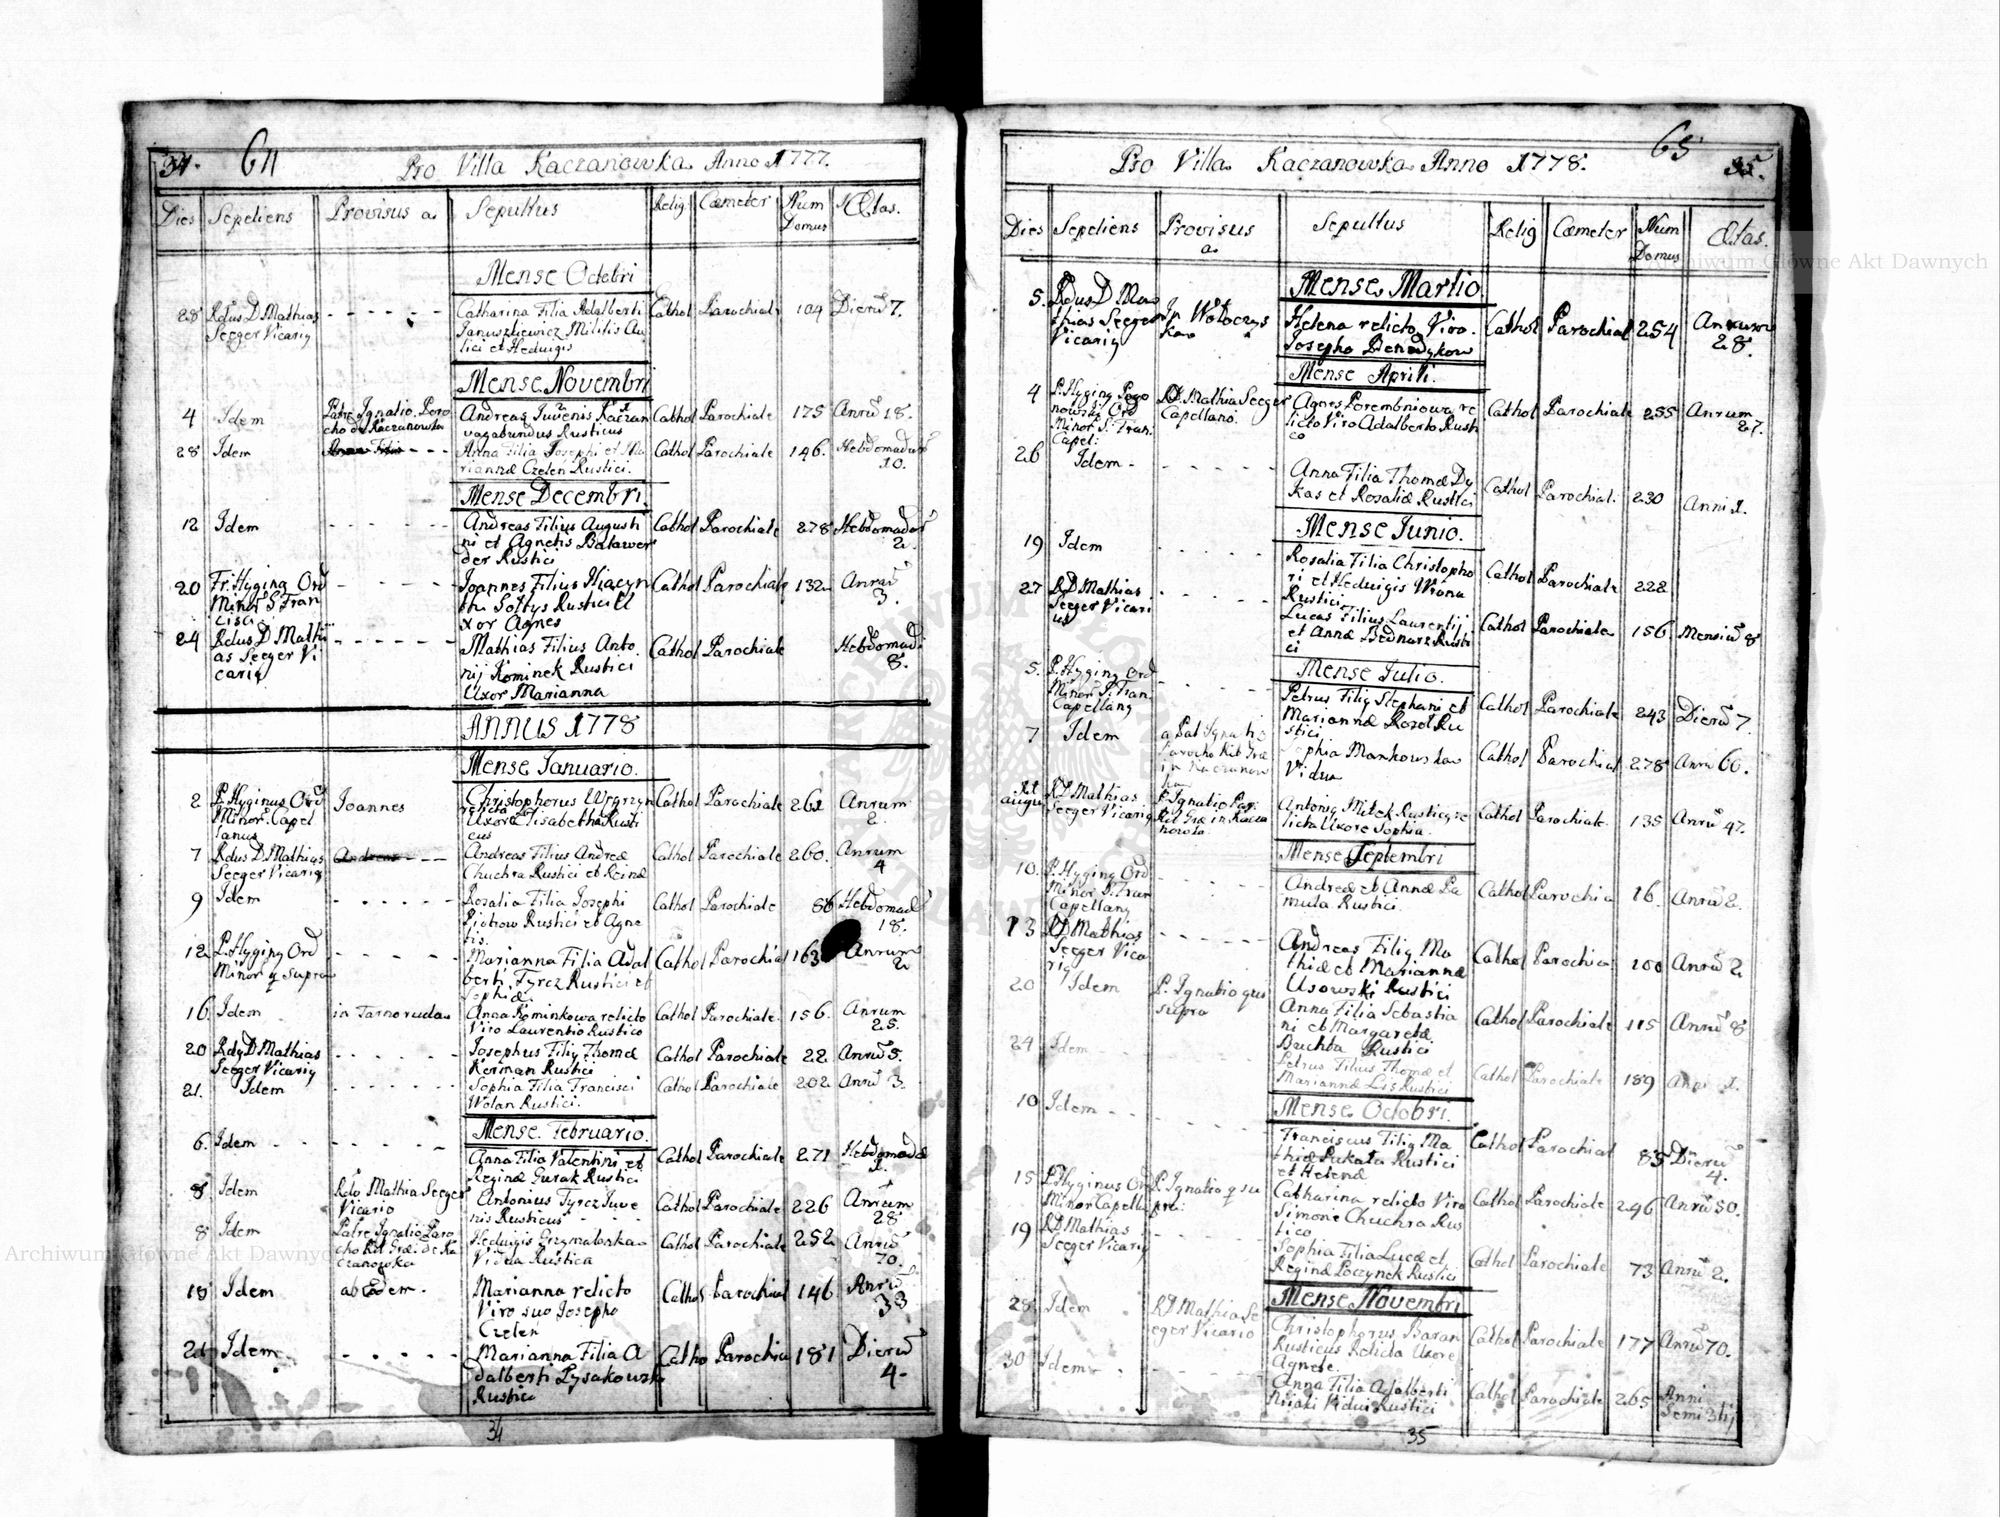 34. 64 Pro Villa Kaczanowka Anno 1777.
Dies Sepeliens Provisus a Sepultus Relig Cæmeter Num Domus Ætas.
Mense Octobri
28 Rdus D Mathias Seeger Vicariq - - - - - Catharina Filia Adalberti Januszkiewicz Militis Au lici et Hedvigis Cathol Parochiale 104 Dierū 7.
Mense Novembri
4 Idem Patre Ignatio Paro cho de Kaczanowka Andreas Juvenis vagabundus Rusticus Cathol Parochiale 175 Anrū 18.
28 Idem - - - Anna Filia Josephi et Ma riannæ Czelen Rustici. Cathol Parochiale 146. Hebdomadar 10.
Mense Decembri.
12 Idem - - - - - Andreas Filius Augusti ni et Agnetis Balawen der Rustici Cathol Parochiale 278 Hebdomadar 2.
20 Fr: Hyging Ord Minor S Fran cisci - - - - - Joannes Filius Hiacyn thi Soltys Rustici U xor Agnes Cathol Parochiale 132 Anrū 3.
24 Rdus D Mathi as Seeger Vi cariq - - - - - Mathias Filius Anto nij Kominek Rustici Uxor Marianna Cathol Parochiale Hebdomad. 8.
ANNUS 1778
Mense Januario.
2 P. Hyginus Ord Minor. Capel lanus Joannes Christophorus relicta Uxore Elisabetha Rusti cus Cathol Parochiale 261 Anrum 2.
7 Rdus D Mathias Seeger Vicariq - - - Andreas Filius Andreæ Chuchra Rustici et Reinæ Cathol Parochiale 260. Anrum 4
9 Idem - - - - - Rosalia Filia Josephi Piotrow Rustici et Agne tis. Cathol Parochiale 86 Hebdomad 18.
12 P. Hyging Ord Minor q supra - - - - - Marianna Filia Adal berti Tyrcz Rustici et Sophiæ Cathol Parochial 163 Anrum 2
16 Idem in Tarnoruda Anna Kominkowa relicto Viro Laurentio Rustico Cathol Parochiale. 156. Anrum 25.
20 Rdq D Mathias Seeger Vicariq - - - - - Josephus Filiq Thomæ Kerman Rustici Cathol Parochiale 22 Anrū 5.
21. Idem - - - - - Sophia Filia Francisci Wolan Rustici. Cathol Parochiale 202 Anrū 3.
Mense. Februario.
6. Idem - - - - - Anna Filia Valentini et Reginæ Gurak Rustici Cathol Parochiale 271 Hebdomadæ 1.
8 Idem Rdo. Mathia Seeger Vicario Antonius Tyrcz Juve nis Rusticus Cathol Parochiale 226 Anrum 28
8 Idem Patre Ignatio Paro cho Rit. Græ. de Ka czanowka Hedvigis Grzymalonka Vidua Rustica Cathol Parochiale 252 Anrū 70.
18 Idem ab Eodem. Marianna relicto Viro suo Josepho Czelen Cathol Parochial 146 Anrū 33
21 Idem - - - - - Marianna Filia A dalberti Lysakowski Rustici Catho Parochia 181 Dierū 4.
34
65 35.
Pro Villa Kaczanowka Anno 1778.
Dies Sepeliens Provisus a Sepultus Relig Cæmeter Num Domus Ætas.
Mense Martio
5. Rdus D Ma thias Seeger Vicariq In Woloczys kao Helena relicto Viro Josepho Benedykow Cathol Parochial 254 Anrum 28.
Mense Aprili.
4 P. Hyging Pogo nowski Ord Minor S. Fran: Capel: D. Mathia Seeger Capellano. Agnes Porembniowa re licto Viro Adalberto Rusti co Cathol Parochiale 255 Anrum 27.
26 Idem - - - - - Anna Filia Thomæ Dy kas et Rosaliæ Rustici Cathol Parochial. 230 Anni 1.
Mense Junio.
19 Idem - - - - - Rosalia Filia Christopho ri et Hedvigis Wrona Rustici Cathol Parochiale 222
27 RD Mathias Seeger Vicari us - - - - - Lucas Filius Laurentij et Annæ Bednarz Rusti ci Cathol Parochiale 156. Mensiū 8
Mense Julio.
5. P. Hyging Ord Minor S. Fran. Capellanq - - - - - Petrus Filiq Stephani et Mariannæ Kozol Ru stici Cathol Parochiale 243 Dierū 7.
7 Idem a Pat Ignatio Parocho Rit Græ in Kaczanow ka Sophia Mankowska Vidua Cathol Parochial 278 Anrū 60.
augu RD Mathias Seeger Vicariq P Ignatio Par Rit Græ in Kacza nowka Antoniq Milek Rusticq re licta Uxore Sophia. Cathol Parochiale. 135 Anrū 47.
Mense Septembri
10. P. Hyging Ord Minor S. Fran Capellanq - - - - Andreæ et Annæ La mula Rustici. Cathol Parochia 16. Anrū 2.
13 RD Mathias Seeger Vica riq - - - - - Andreas Filiq Ma thiæ et Mariannæ Usowski Rustici Cathol Parochia 100 Anrū 2
20 Idem P. Ignatio qui supra Anna Filia Sebastia ni et Margaretæ Buchta Rustici Cathol Parochiale 115 Anrū 8
24 Idem Petrus Filius Thomæ et Mariannæ Lis Rustici Cathol Parochiale 189 Anni 1.
Mense Octobri.
10 Idem - - - Franciscus Filiq Ma thiæ Pukala Rustici et Helenæ Cathol Parochial 85 Dierū 4.
15 P. Hyginus Ord Minor Capella P. Ignatio q su pra: Catharina relicto Viro Simone Chuchra Rus tico Cathol Parochiale 246 Anrū 50.
19 RD Mathias Seeger Vicariq - - - Sophia Filia Lucæ et Reginæ Poczynek Rustici Cathol Parochiale 73 Anrū 2.
Mense Novembri
28 Idem RD Mathia Se eger Vicario Christophorus Baran Rusticus Relicta Uxore Agnete. Cathol Parochiale 177 Anrū 70.
30 Idem - - - Anna Filia Adalberti Vidui Rustici Cathol Parochiale 265 Anni Semi
35
Archiwum Główne Akt Dawnych
Archiwum Główne Akt Dawnych
ARCHIWUM GŁÓWNE AKT DAWNYCH